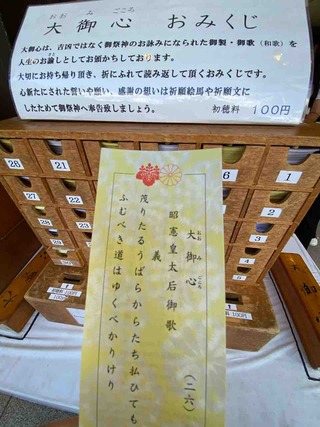 おお み ごころ
大御心 おみくじ
大御心は、吉凶ではなく御祭神のお詠みになられた御製・御歌(和歌)を
人生のお諭しとしてお頒かちしております。
さと
大切にお持ち帰り頂き、折にふれて読み返して頂くおみくじです。
心新たにされた誓いや願い、感謝の想いは祈願絵馬や祈願文に
したためて御祭神へ奉告致しましょう。
初穂料 100円
26
21
1
27
2
28
3
29
4
5
大御心
おお み ごころ
(二六)
昭憲皇太后御歌
義
茂りたるうばらからたち払ひても
ふむべき道はゆくべかりけり
100円